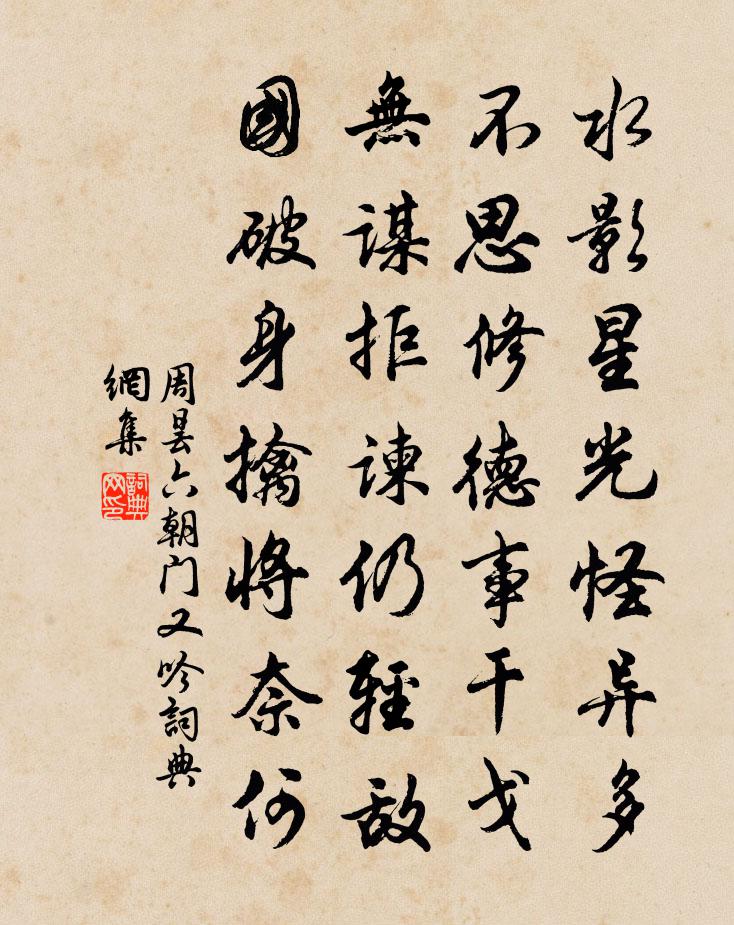 水影星光怪异多
不思修德事干戈
無谋拒谏仍輕敌
國破身擒将奈何
周昙六朝门又吟詞典
網集
詞典
网印